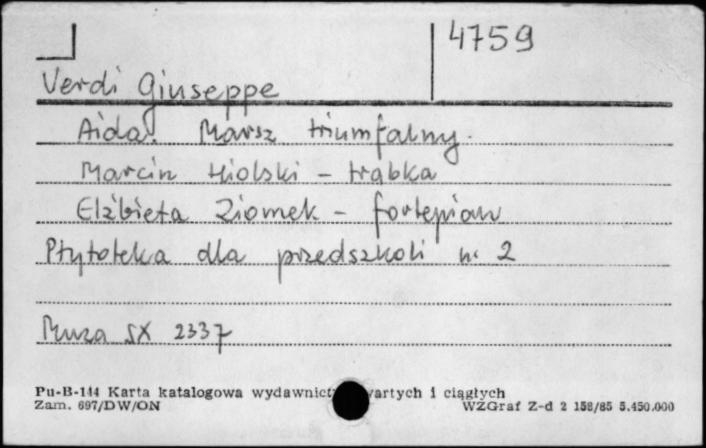 4759
Verdi Giuseppe
Aida. Marsz triumfalny.
Marcin Miolski - trąbka
Elżbieta Ziomek - fortepian
Płytoteka dla przedszkoli nr 2
Muza SX 2337
Pu-B-144 Karta katalogowa wydawnict wartych i ciągłych
Zam. 697/DW/ON WZGraf Z-d 2 158/85 5.450.000